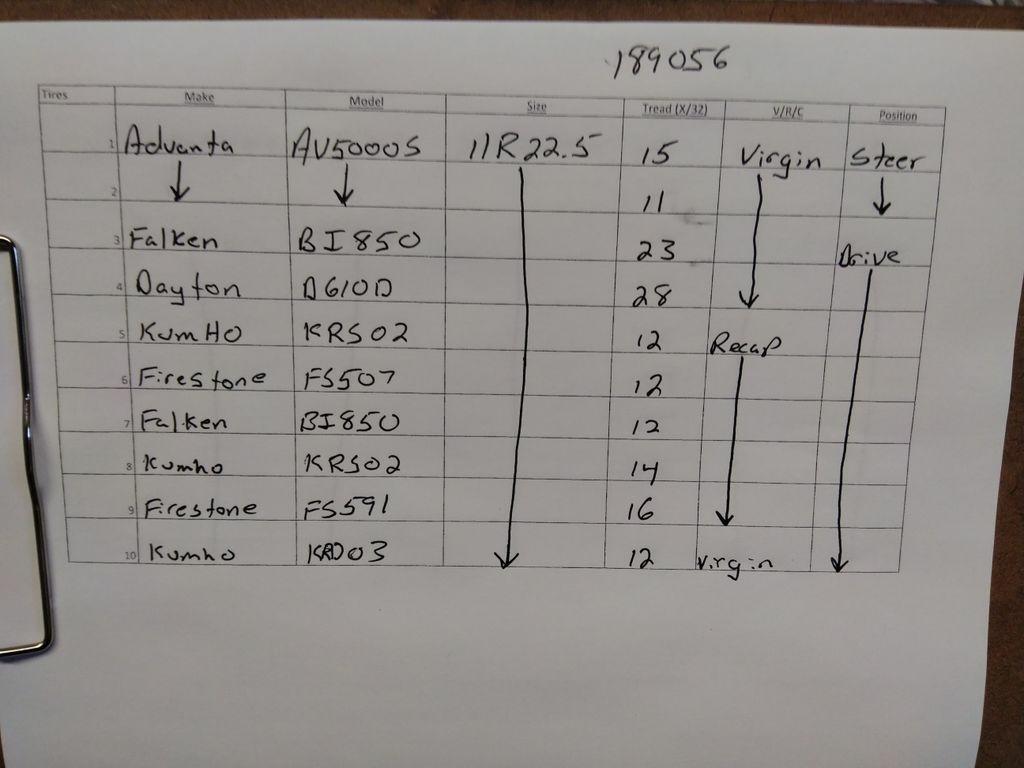 189056
Tires Make Model Size Tread (X/32) V/R/C Position
1 Advanta AV5000S 11R22.5 15 Virgin Steer
2 11
3 Falken BI850 23 Drive
4 Dayton D610D 28
5 KumHO KRS02 12 Recap
6 Firestone FS507 12
7 Falken BI850 12
8 Kumho KRS02 14
9 Firestone FS591 16
10 Kumho KRD03 12 Virgin